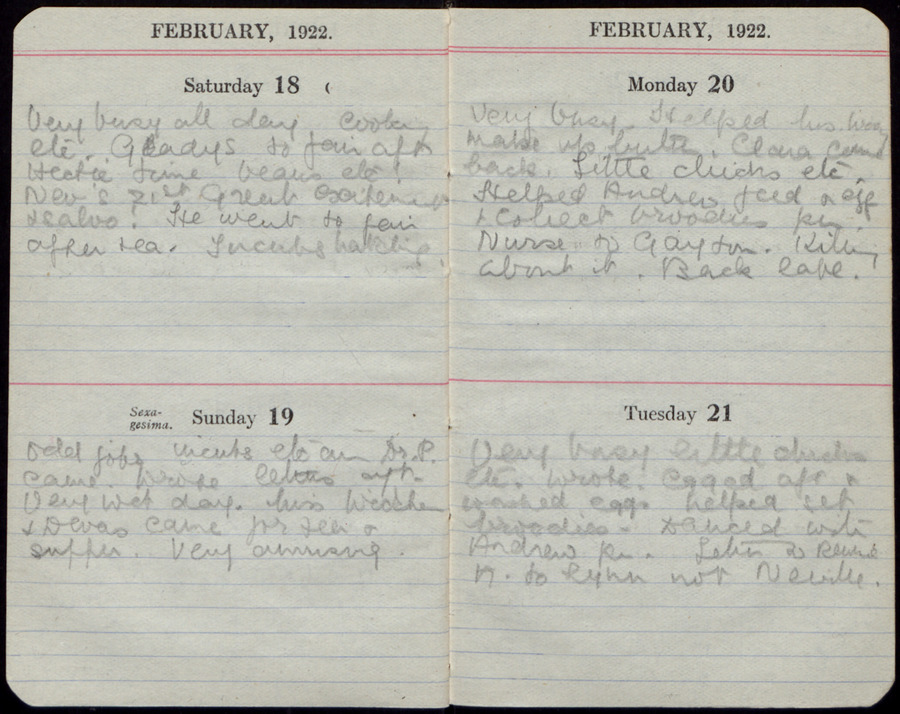 FEBRUARY, 1922.
Saturday 18
Very busy all day cooking
etc. Gladys to fair aft
Hectic time beans etc!
Nev's 21st Great excitement
& salvo! He went to fair
after tea. Incubs hatching
Sexa-
gesima. Sunday 19
Odd jobs incubs etc am Dr. P.
came. Wrote letters aft.
Very wet day. Miss
& Devas came for tea &
supper. Very amusing.
FEBRUARY, 1922.
Monday 20
Very busy. Helped
make up butter. Clara came
back. Little chicks etc.
Helped Andrew feed & egg
& collect broodies pm.
Nurse to Gayton.
about it. Back late.
Tuesday 21
Very busy little chicks
etc. wrote. Egged aft &
washed eggs helped set
broodies. Danced with
Andrew pm. Letter
N. to Lynn not Neville.